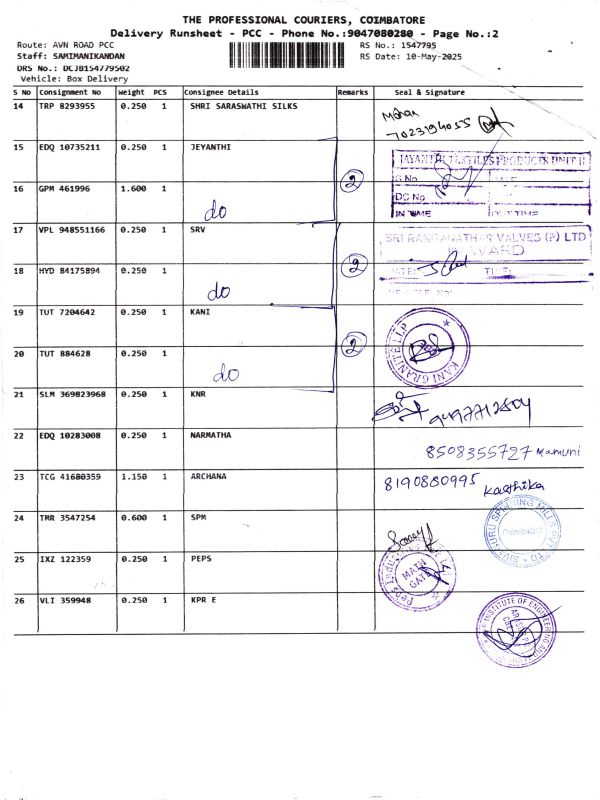 THE PROFESSIONAL COURIERS, COIMBATORE
Delivery Runsheet - PCC - Phone No.:9047080280 - Page No.:2
Route: AVN ROAD PCC RS No.: 1547795
Staff: SAMIMANIKANDAN RS Date: 10-May-2025
DRS No.: DCJB154779502
Vehicle: Box Delivery
S No Consignment No Weight PCS Consignee Details Remarks Seal & Signature
14 TRP 8293955 0.250 1 SHRI SARASWATHI SILKS
7023194055
15 EDQ 10735211 0.250 1 JEYANTHI
JAYANTHI TEXTILES PRODUCTS UNIT II
G No
DC No
IN TIME OUT TIME
16 GPM 461996 1.600 1 do 2
17 VPL 948551166 0.250 1 SRV
SRI RANGANATHAR VALVES (P) LTD
18 HYD 84175894 0.250 1 do 2
19 TUT 7204642 0.250 1 KANI
KANI GRANITE LLP
20 TUT 884628 0.250 1 do 2
21 SLM 369823968 0.250 1 KNR
22 EDQ 10283008 0.250 1 NARMATHA 8508355727 Mamuni
23 TCG 41680359 1.150 1 ARCHANA 8190880995 Karthika
24 TMR 3547254 0.600 1 SPM
Coimbatore
25 IXZ 122359 0.250 1 PEPS
MAIN GATE
26 VLI 359948 0.250 1 KPR E
INSTITUTE OF ENGINEERING AND